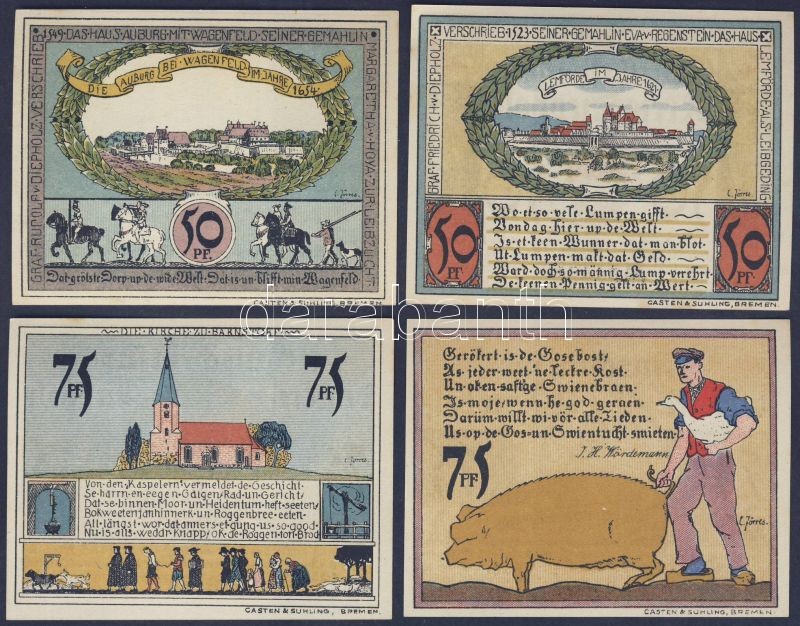 1549·DAS·HAUS·AUBURG·MIT·WAGENFELD·SEINER·GEMAHLIN
GRAF·RUDOLF·V·DIEPHOLZ·VERSCHRIEB
MARGARETHA·V·HOYA·ZUR·LEIBZUCHT
DIE AUBURG BEI WAGENFELD IM JAHRE 1654.
C. Jörres.
50
PF.
Dat·grötste·Dorp·up·de·wide·Welt·Dat·is·un·blifft·min·Wagenfeld
CASTEN & SUHLING, BREMEN.
VERSCHRIEB·1523·SEINER·GEMAHLIN·EVA·V·REGENSTEIN·DAS·HAUS
GRAF·FRIEDRICH·V·DIEPHOLZ
LEMFÖRDE·ALS·LEIBGEDING
LEMFÖRDE IM JAHRE 1621
C. Jörres.
50
PF.
50
PF.
Wo·et·so·vele·Lumpen·gifft
Vondag·hier·up·de·Welt·
Is·et·keen·Wunner·dat·man·blot
Ut·Lumpen·makt·dat·Geld
Ward·doch·so·männig·Lump·verehrt
De·keenen·Pennig·gelt·an·Wert
CASTEN & SUHLING, BREMEN.
darabanth
DIE·KIRCHE·ZU·BARNSTORF
75
PF.
75
PF.
C. Jörres.
Von·den·Kaspelern·vermeldet·de·Geschicht
Se·harrn·en·eegen·Galgen·Rad·un·Gericht
Dat·se·binnen·Moor·un·Heidentum·heft·seeten
Bokweetenjanhinnerk·un·Roggenbree·eeten
All·längst·wor·dat·anners·et·gung·us·so·good
Nu·is·alls·wedder·knapp·ok·de·Roggen·ton·Brod
CASTEN & SUHLING, BREMEN.
Gerökert·is·de·Gosebost
As·jeder·weet·'ne·leckre·Kost
Un·ok·en·saftge·Swienebraen
Is·moje·wenn·he·god·geraen
Darüm·willt·wi·vör·alle·Tieden
Us·op·de·Gos=un·Swientucht·smieten
J. H. Wördemann
75
PF.
C. Jörres.
CASTEN & SUHLING, BREMEN.